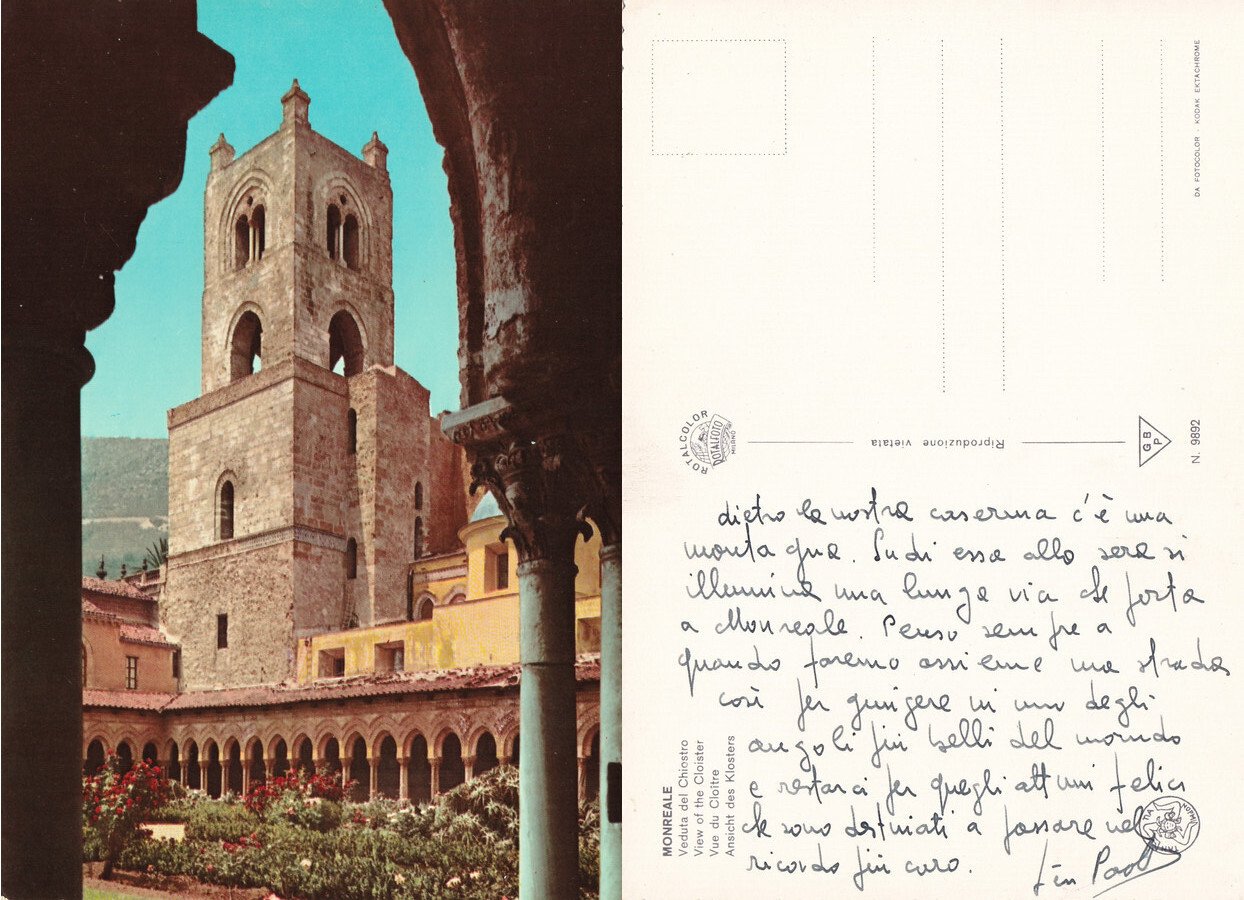 DA FOTOCOLOR · KODAK EKTACHROME
ROTALCOLOR
ROTALFOTO
MILANO
Riproduzione vietata
GBP
N. 9892
dietro la nostra caserma c'è una
montagna. Su di essa alla sera si
illumina una lunga via che porta
a Monreale. Penso sempre a
quando faremo assieme una strada
così per giungere in uno degli
angoli più belli del mondo
e restarci per quegli attimi felici
che sono destinati a passare nel
ricordo più caro.
MONREALE
Veduta del Chiostro
View of the Cloister
Vue du Cloître
Ansicht des Klosters